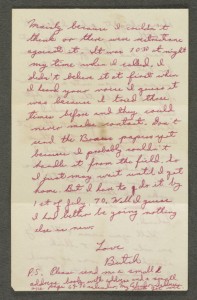 Mainly because I couldn't
think or there were restrictions
against it. It was 10:30 at night
my time when I called, I
didn't believe it at first when
I heard your voice I guess it
was because I tried three
times before and they could
never make contact. Don't
send the Bronco papers yet
because I probably couldn't
handle it from the field. So
I just may wait until I get
home. But I have to do it by
1st of July 70. Well I guess
I had better be going nothing
else is new.
Love
Butch
P.S. Please send me a small
address book with address and a small